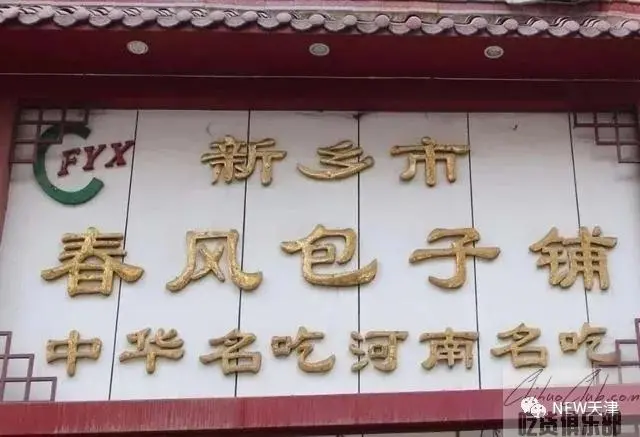 CFYX
新乡市
春风包子铺
中华名吃河南名吃
ChihuoClub.com
吃货俱乐部
NEW天津